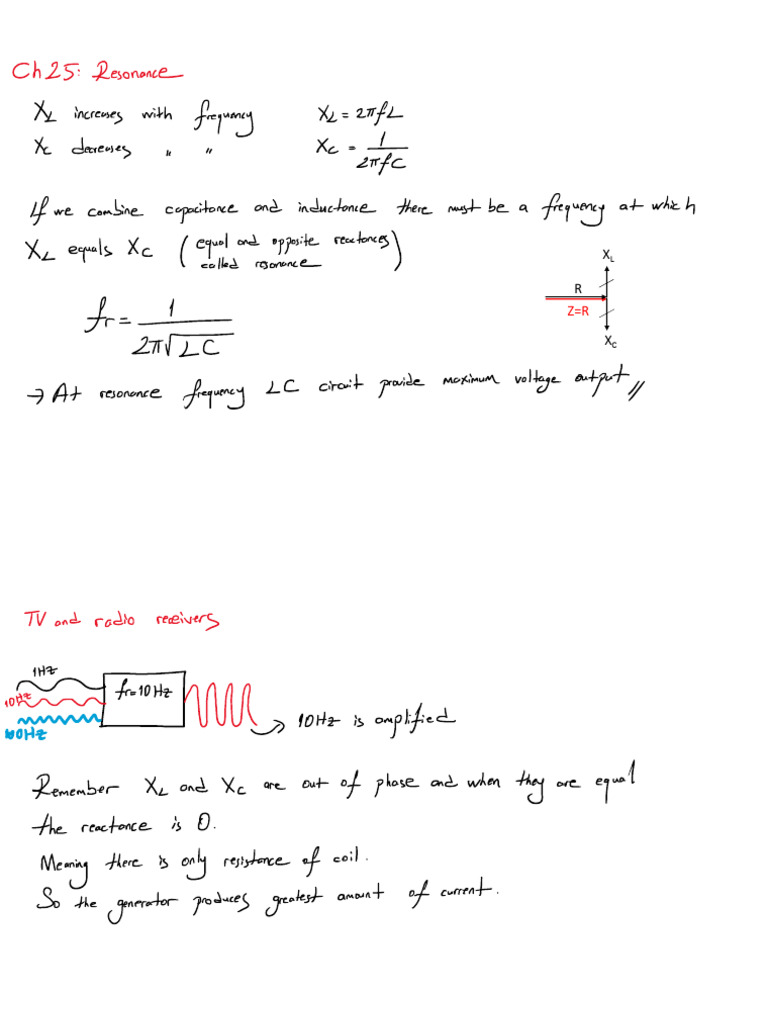 Ch 25: Resonance
XL increases with frequency XL = 2πfL
Xc decreases " " Xc = 1/2πfC
If we combine capacitance and inductance there must be a frequency at which
XL equals Xc (equal and opposite reactances called resonance)
XL
R
Z=R
XC
fr = 1/2π√LC
→ At resonance frequency LC circuit provide maximum voltage output //
TV and radio receivers
1Hz
10Hz
100Hz
fr=10Hz
→ 10Hz is amplified
Remember XL and Xc are out of phase and when they are equal
the reactance is 0.
Meaning there is only resistance of coil.
So the generator produces greatest amount of current.